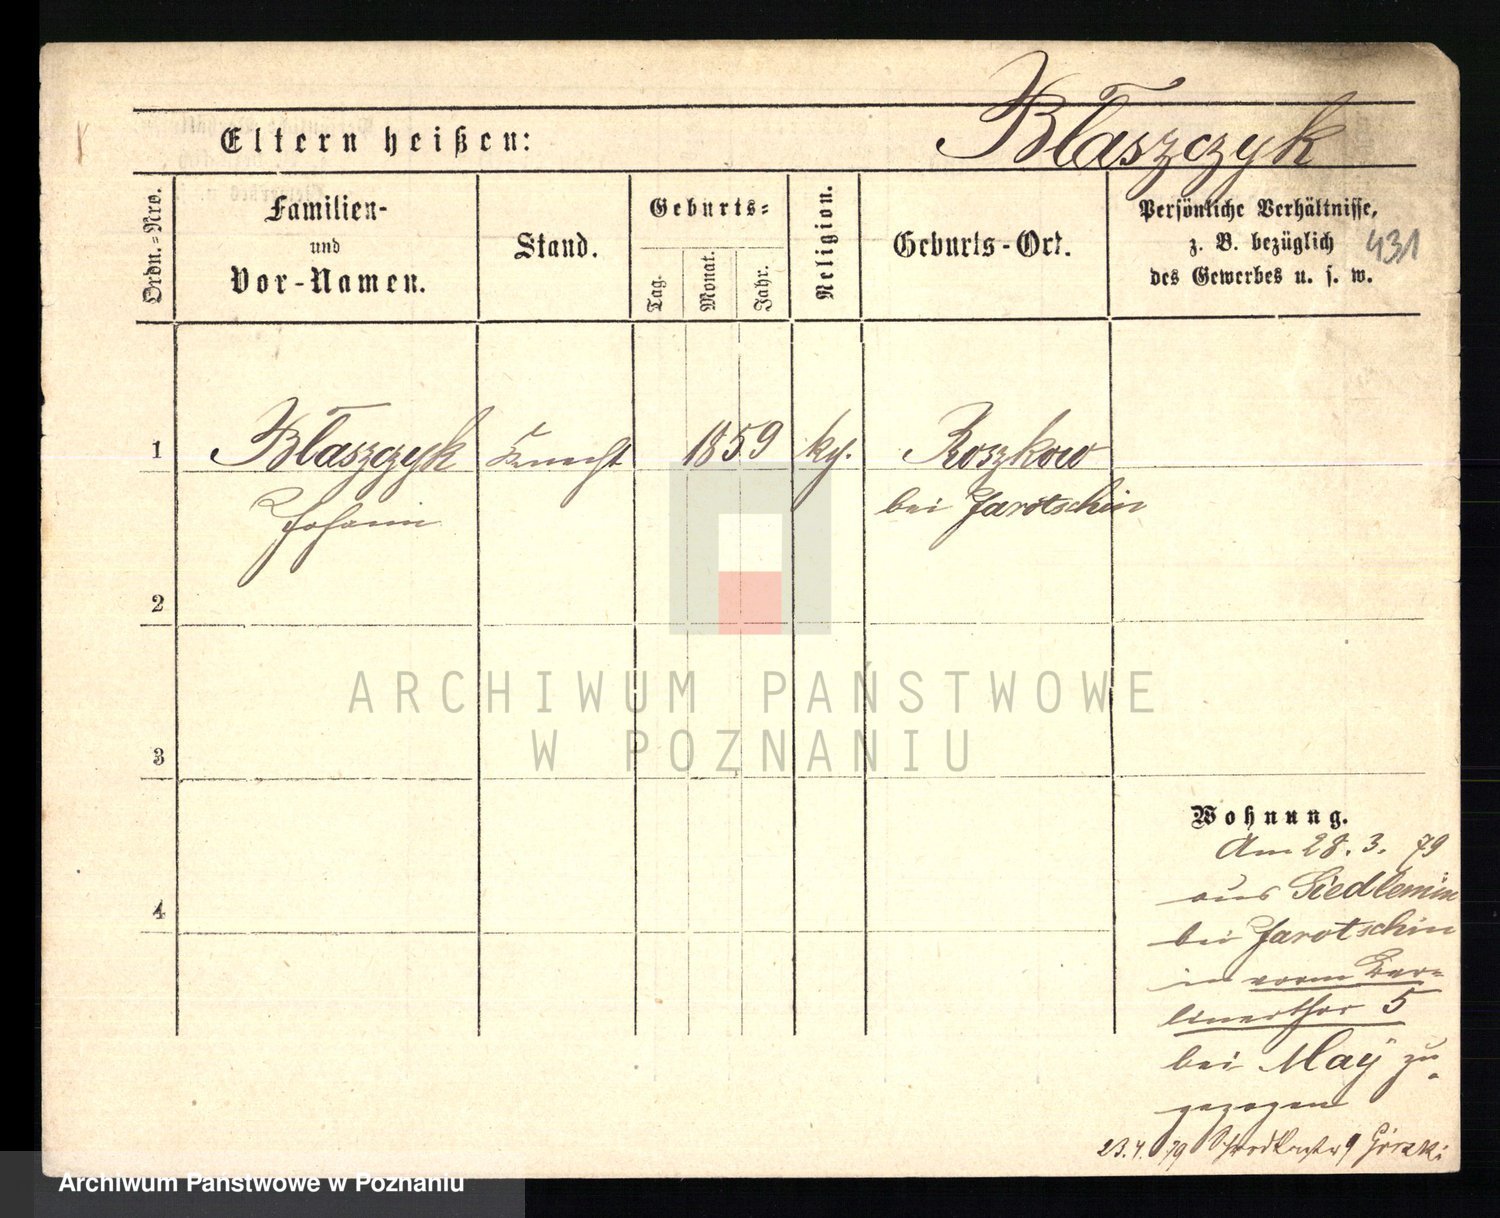 Błaszczyk
Eltern heißen:
Ordn.-Nro.
Familien-
und
Vor-Namen.
Stand.
Geburts-
Tag.
Monat.
Jahr.
Religion.
Geburts-Ort.
Persönliche Verhältnisse,
z. B. bezüglich
des Gewerbes u. s. w.
431
1
Błaszczyk
Johann
Knecht
1859
Roszkow
bei Jarotschin
2
3
4
Wohnung.
Am 28. 3. 79
aus Siedlemin
bei Jarotschin
in vorm Ber-
linerthor 5
bei May zu-
gezogen
23.4. 79 9 Górski
ARCHIWUM PAŃSTWOWE
W POZNANIU
Archiwum Państwowe w Poznaniu